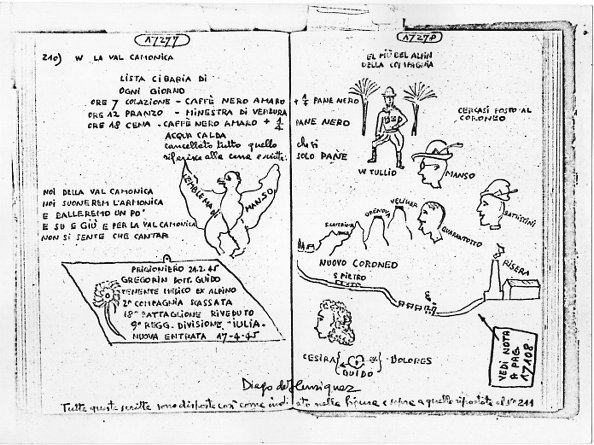 17277
210) W LA VAL CAMONICA
LISTA CIBARIA DI
OGNI GIORNO
ORE 7 COLAZIONE - CAFFÈ NERO AMARO + 1/4 PANE NERO
ORE 12 PRANZO - MINESTRA DI VERDURA PANE NERO
ORE 18 CENA - CAFFÈ NERO AMARO + 1/4
ACQUA CALDA
cancellato tutto quello
chi si
SOLO PANE
L'EMBLEMA DI MANSO
NOI DELLA VAL CAMONICA
NOI SUONEREM L'ARMONICA
E BALLEREMO UN PO'
E SU E GIÙ E PER LA VAL CAMONICA
NON SI SENTE CHE CANTAR
PRIGIONIERO 21.2.45
GREGORIN DOTT. GUIDO
TENENTE MEDICO EX ALPINO
2ª COMPAGNIA SCASSATA
18º BATTAGLIONE RIVEDUTO
9º REGG. DIVISIONE "IULIA"
NUOVA ENTRATA 17-4-45
17278
EL PIÙ BEL ALPIN
DELLA COMPAGNIA
CERCASI POSTO AL
CORONEO
W TULLIO
MANSO
BATTISTINI
S. CATERINA
QUARANTOTTO
NUOVO CORONEO
S PIETRO
RISERA
CESIRA DOLORES
GUIDO
VEDI NOTA
A PAG.
17108
Diego de Henriquez
Tutte queste scritte sono disposte così come indicato nella figura e sopra a quello riportate al nº 211